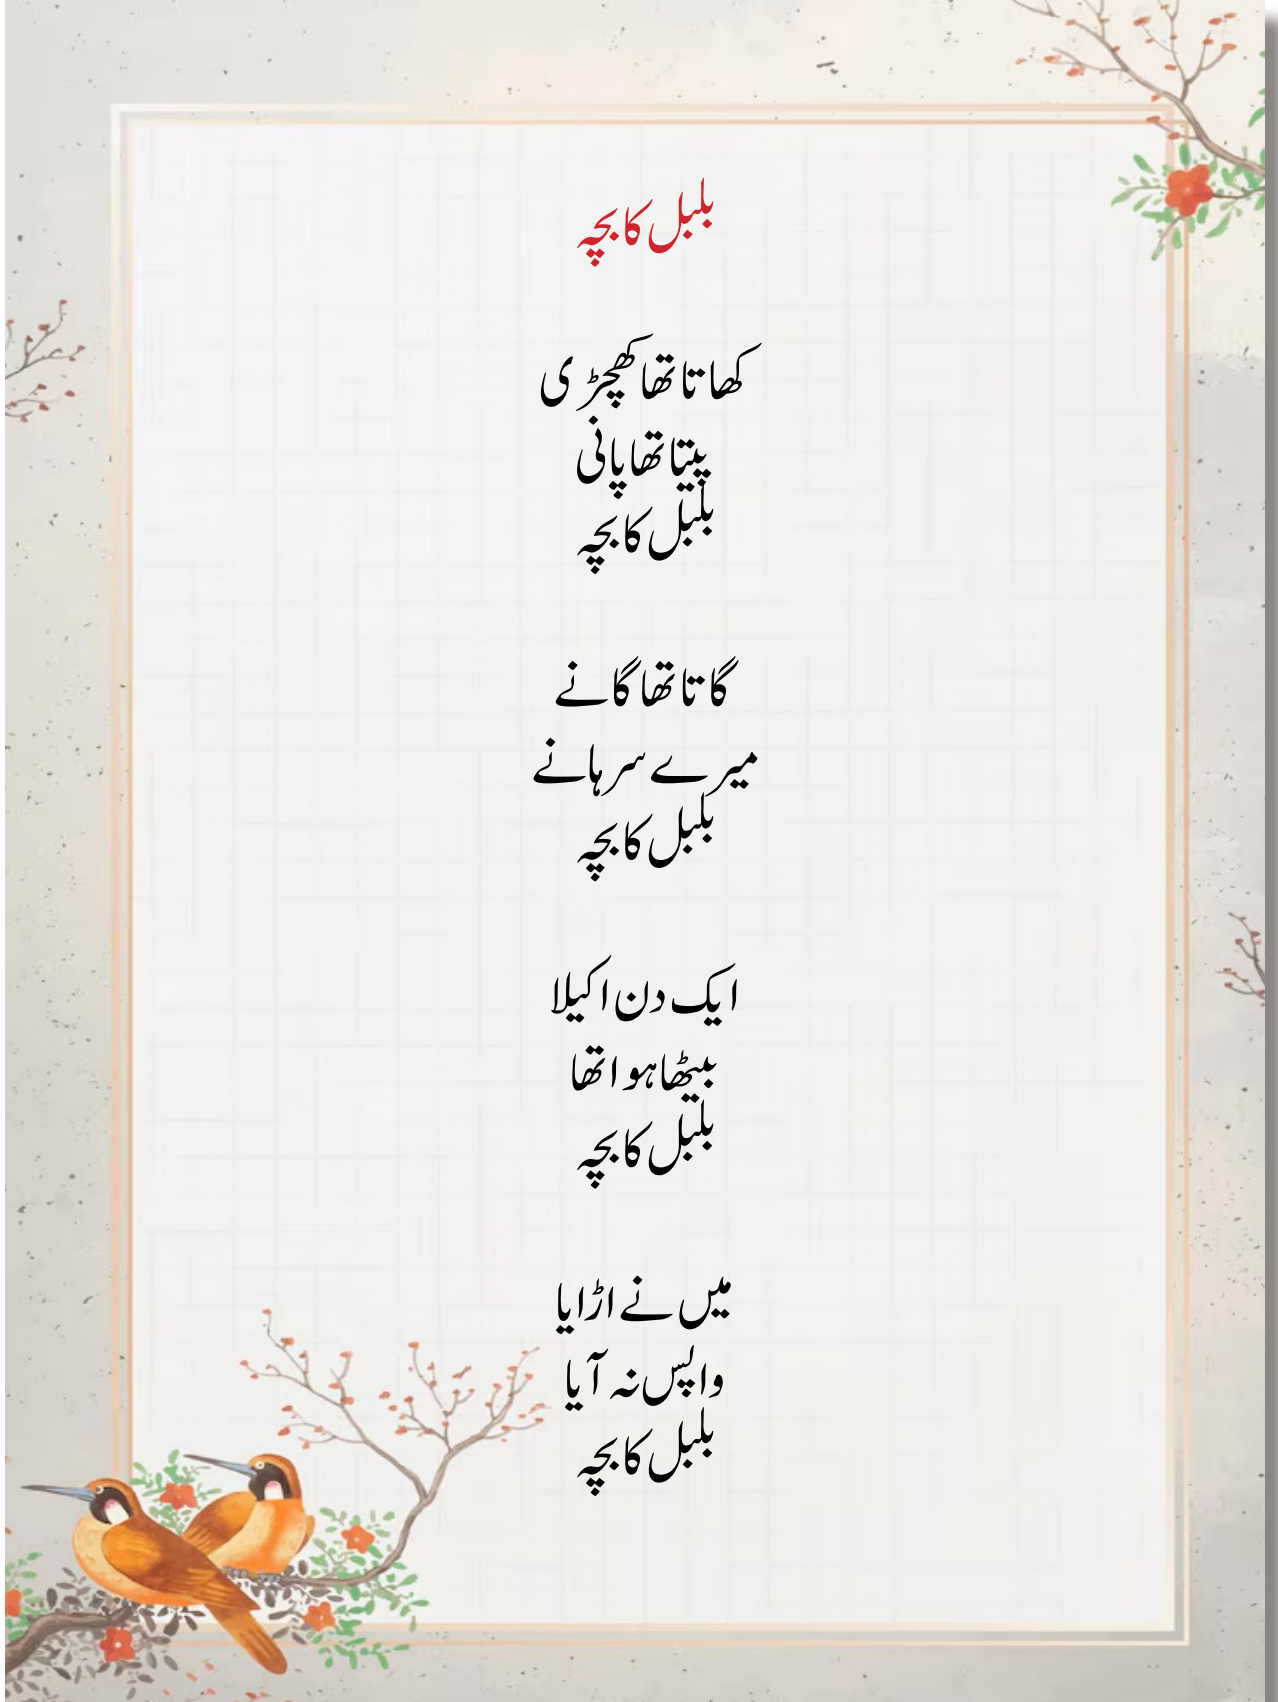 بلبل کا بچہ
کھاتا تھا کھچڑی
پیتا تھا پانی
بلبل کا بچہ
گاتا تھا گانے
میرے سرہانے
بلبل کا بچہ
ایک دن اکیلا
بیٹھا ہوا تھا
بلبل کا بچہ
میں نے اڑایا
واپس نہ آیا
بلبل کا بچہ